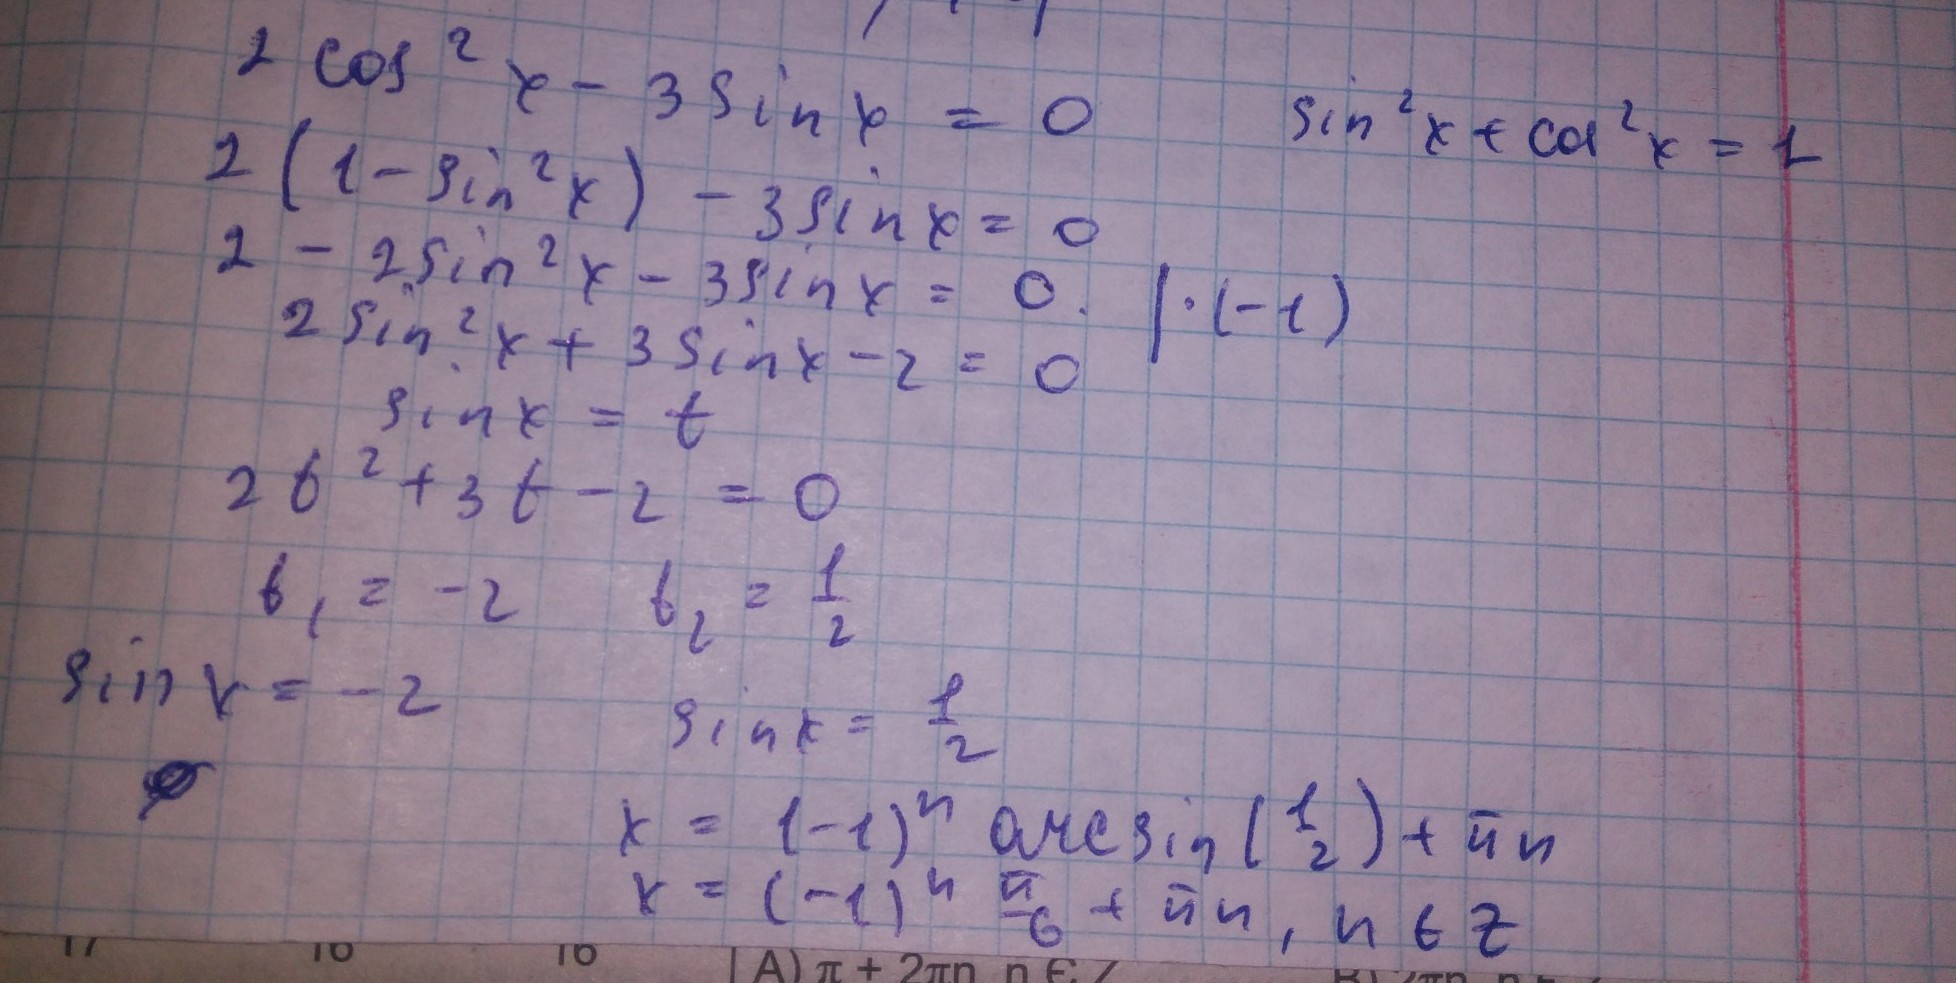 2 cos² x - 3 sin x = 0
sin² x + cos² x = 1
2 (1 - sin² x) - 3 sin x = 0
2 - 2 sin² x - 3 sin x = 0. | · (-1)
2 sin² x + 3 sin x - 2 = 0
sin x = t
2t² + 3t - 2 = 0
t₁ = -2 t₂ = 1/2
sin x = -2 sin x = 1/2
∅
x = (-1)ⁿ arcsin (1/2) + πn
x = (-1)ⁿ π/6 + πn, n ∈ Z
17 16 16 А) π + 2πn, n ∈ Z